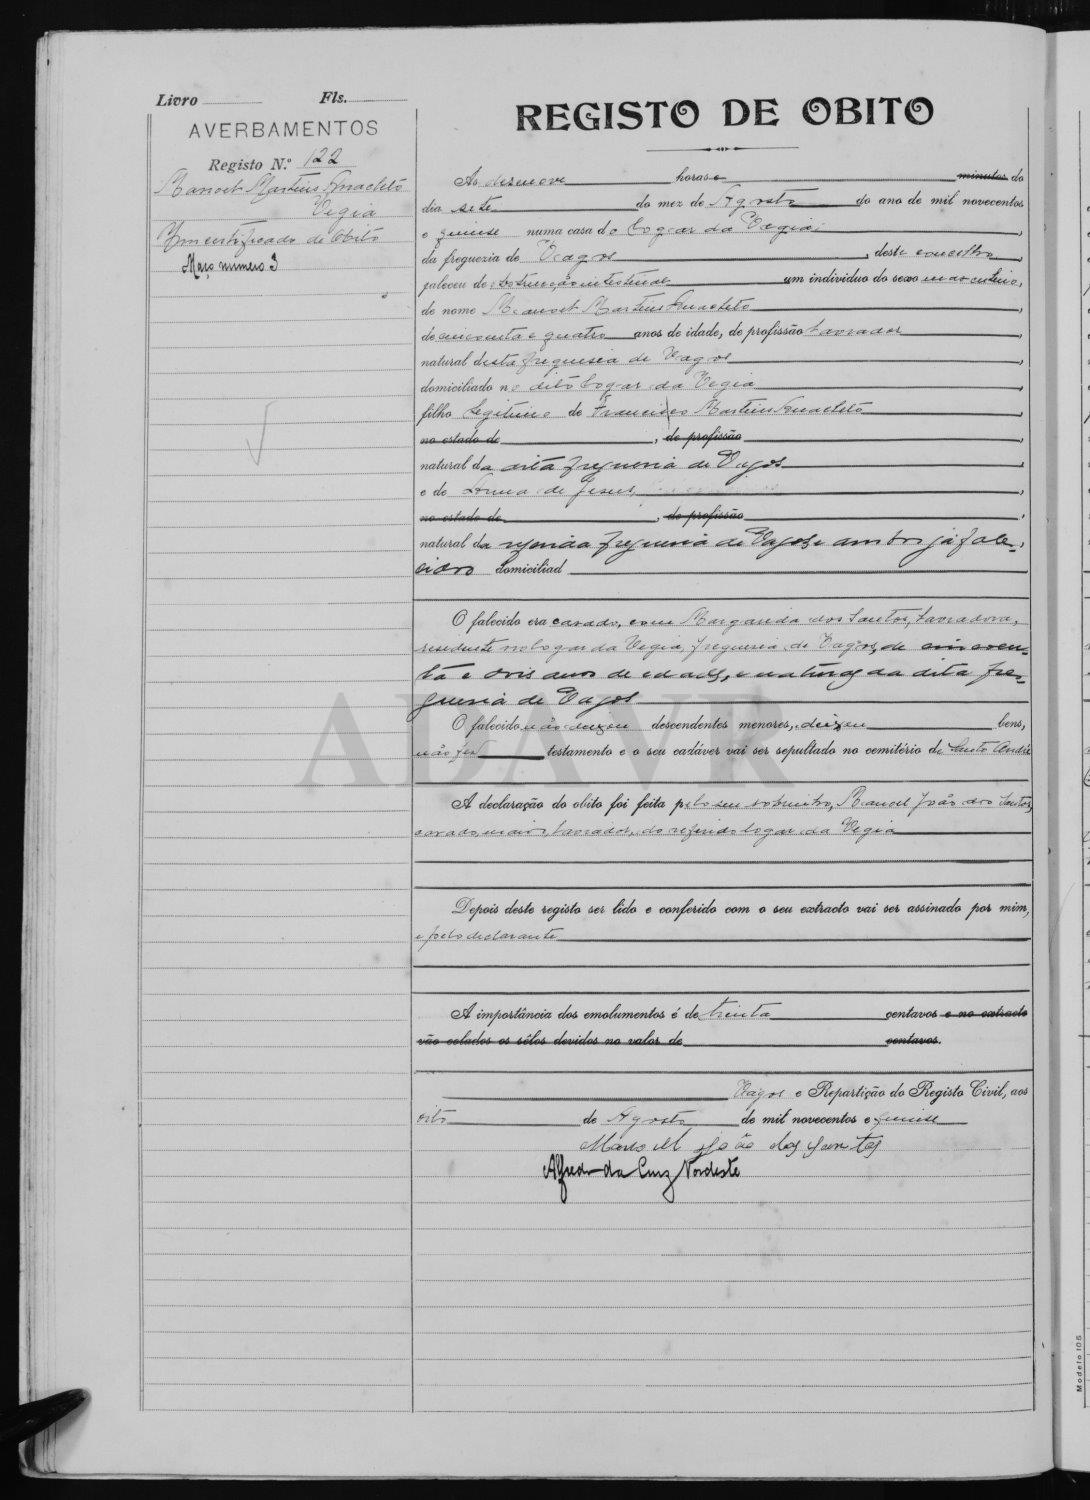 Livro Fls.
AVERBAMENTOS
Registo N.º 122
Manoel Martins Anacleto
Vegia
Um certificado de obito
Março numero 3
REGISTO DE OBITO
As desenove horas e minutos do
dia sete do mez de Agosto do ano de mil novecentos
e quinse numa casa do logar da Vegia
da freguezia de Vagos, deste concelho,
faleceu de obstrução intestinal um individuo do sexo masculino,
de nome Manoel Martins Anacleto,
de cincoenta e quatro anos de idade, de profissão lavrador,
natural desta freguesia de Vagos,
domiciliado no dito logar da Vegia,
filho legitimo de Francisco Martins Anacleto,
no estado de, de profissão,
natural da dita freguesia de Vagos,
e de de Jesus,
no estado de, de profissão,
natural da referida freguesia de Vagos e ambos já fale-
cidos domiciliad
O falecido era casado, com Margarida dos Santos, lavradora,
residente no logar da Vegia, freguesia de Vagos, de cincoen-
ta e dois anos de edade, e natural da dita fre-
guesia de Vagos
O falecido não deixou descendentes menores, deixou bens,
não fez testamento e o seu cadáver vai ser sepultado no cemitério de Santo André
A declaração do obito foi feita pelo seu sobrinho, Manoel João dos Santos,
casado, maior, lavrador, do referido logar da Vegia
Depois deste registo ser lido e conferido com o seu extracto vai ser assinado por mim,
e pelo declarante
A importância dos emolumentos é de trinta centavos e no extracto
vão colados os sêlos devidos no valor de centavos.
Vagos e Repartição do Registo Civil, aos
oito de Agosto de mil novecentos e quinse
Manoel João dos Santos
Alfredo da Cruz Nordeste
ADAVR
Modelo 105